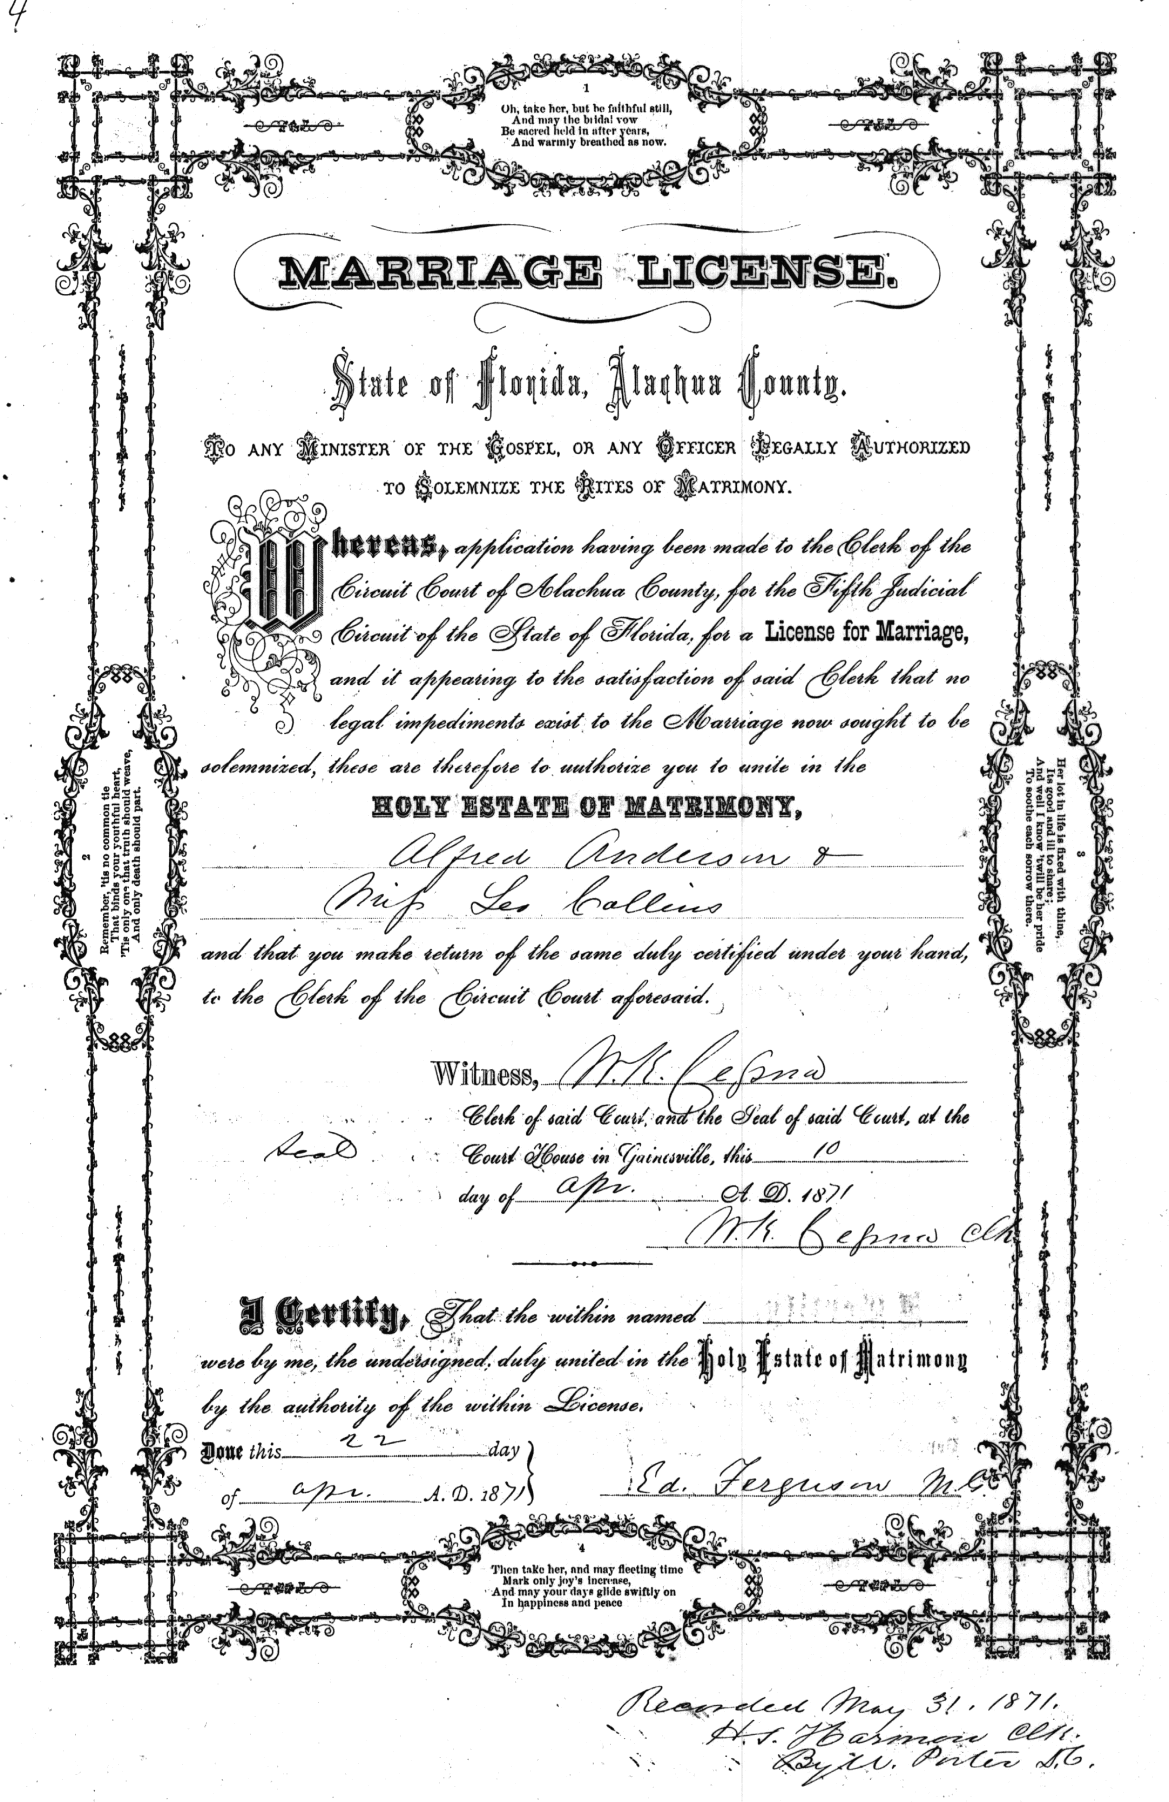 4
1
Oh, take her, but be faithful still,
And may the bridal vow
Be sacred held in after years,
And warmly breathed as now.
MARRIAGE LICENSE.
State of Florida, Alachua County.
TO ANY MINISTER OF THE GOSPEL, OR ANY OFFICER LEGALLY AUTHORIZED
TO SOLEMNIZE THE RITES OF MATRIMONY.
Whereas, application having been made to the Clerk of the
Circuit Court of Alachua County, for the Fifth Judicial
Circuit of the State of Florida, for a License for Marriage,
and it appearing to the satisfaction of said Clerk that no
legal impediments exist to the Marriage now sought to be
solemnized, these are therefore to authorize you to unite in the
HOLY ESTATE OF MATRIMONY,
Alfred Anderson &
Miss Leo Collins
and that you make return of the same duly certified under your hand,
to the Clerk of the Circuit Court aforesaid.
Witness, W. K. Cessna
Clerk of said Court, and the Seal of said Court, at the
Seal
Court House in Gainesville, this 10
day of Apr. A. D. 1871
W. K. Cessna Clk
I Certify, That the within named
were by me, the undersigned, duly united in the Holy Estate of Matrimony
by the authority of the within License.
Done this 22 day
of Apr. A. D. 1871
Ed. Ferguson M.G.
2
Remember, 'tis no common tie
That binds your youthful heart,
'Tis only one that truth should weave,
And only death should part.
3
Her lot in life is fixed with thine,
Its good and ill to share;
And well I know 'twill be her pride
To soothe each sorrow there.
4
Then take her, and may fleeting time
Mark only joy's increase,
And may your days glide swiftly on
In happiness and peace
Recorded May 31. 1871.
H. S. Harmon Clk.
By W. Porter D.C.